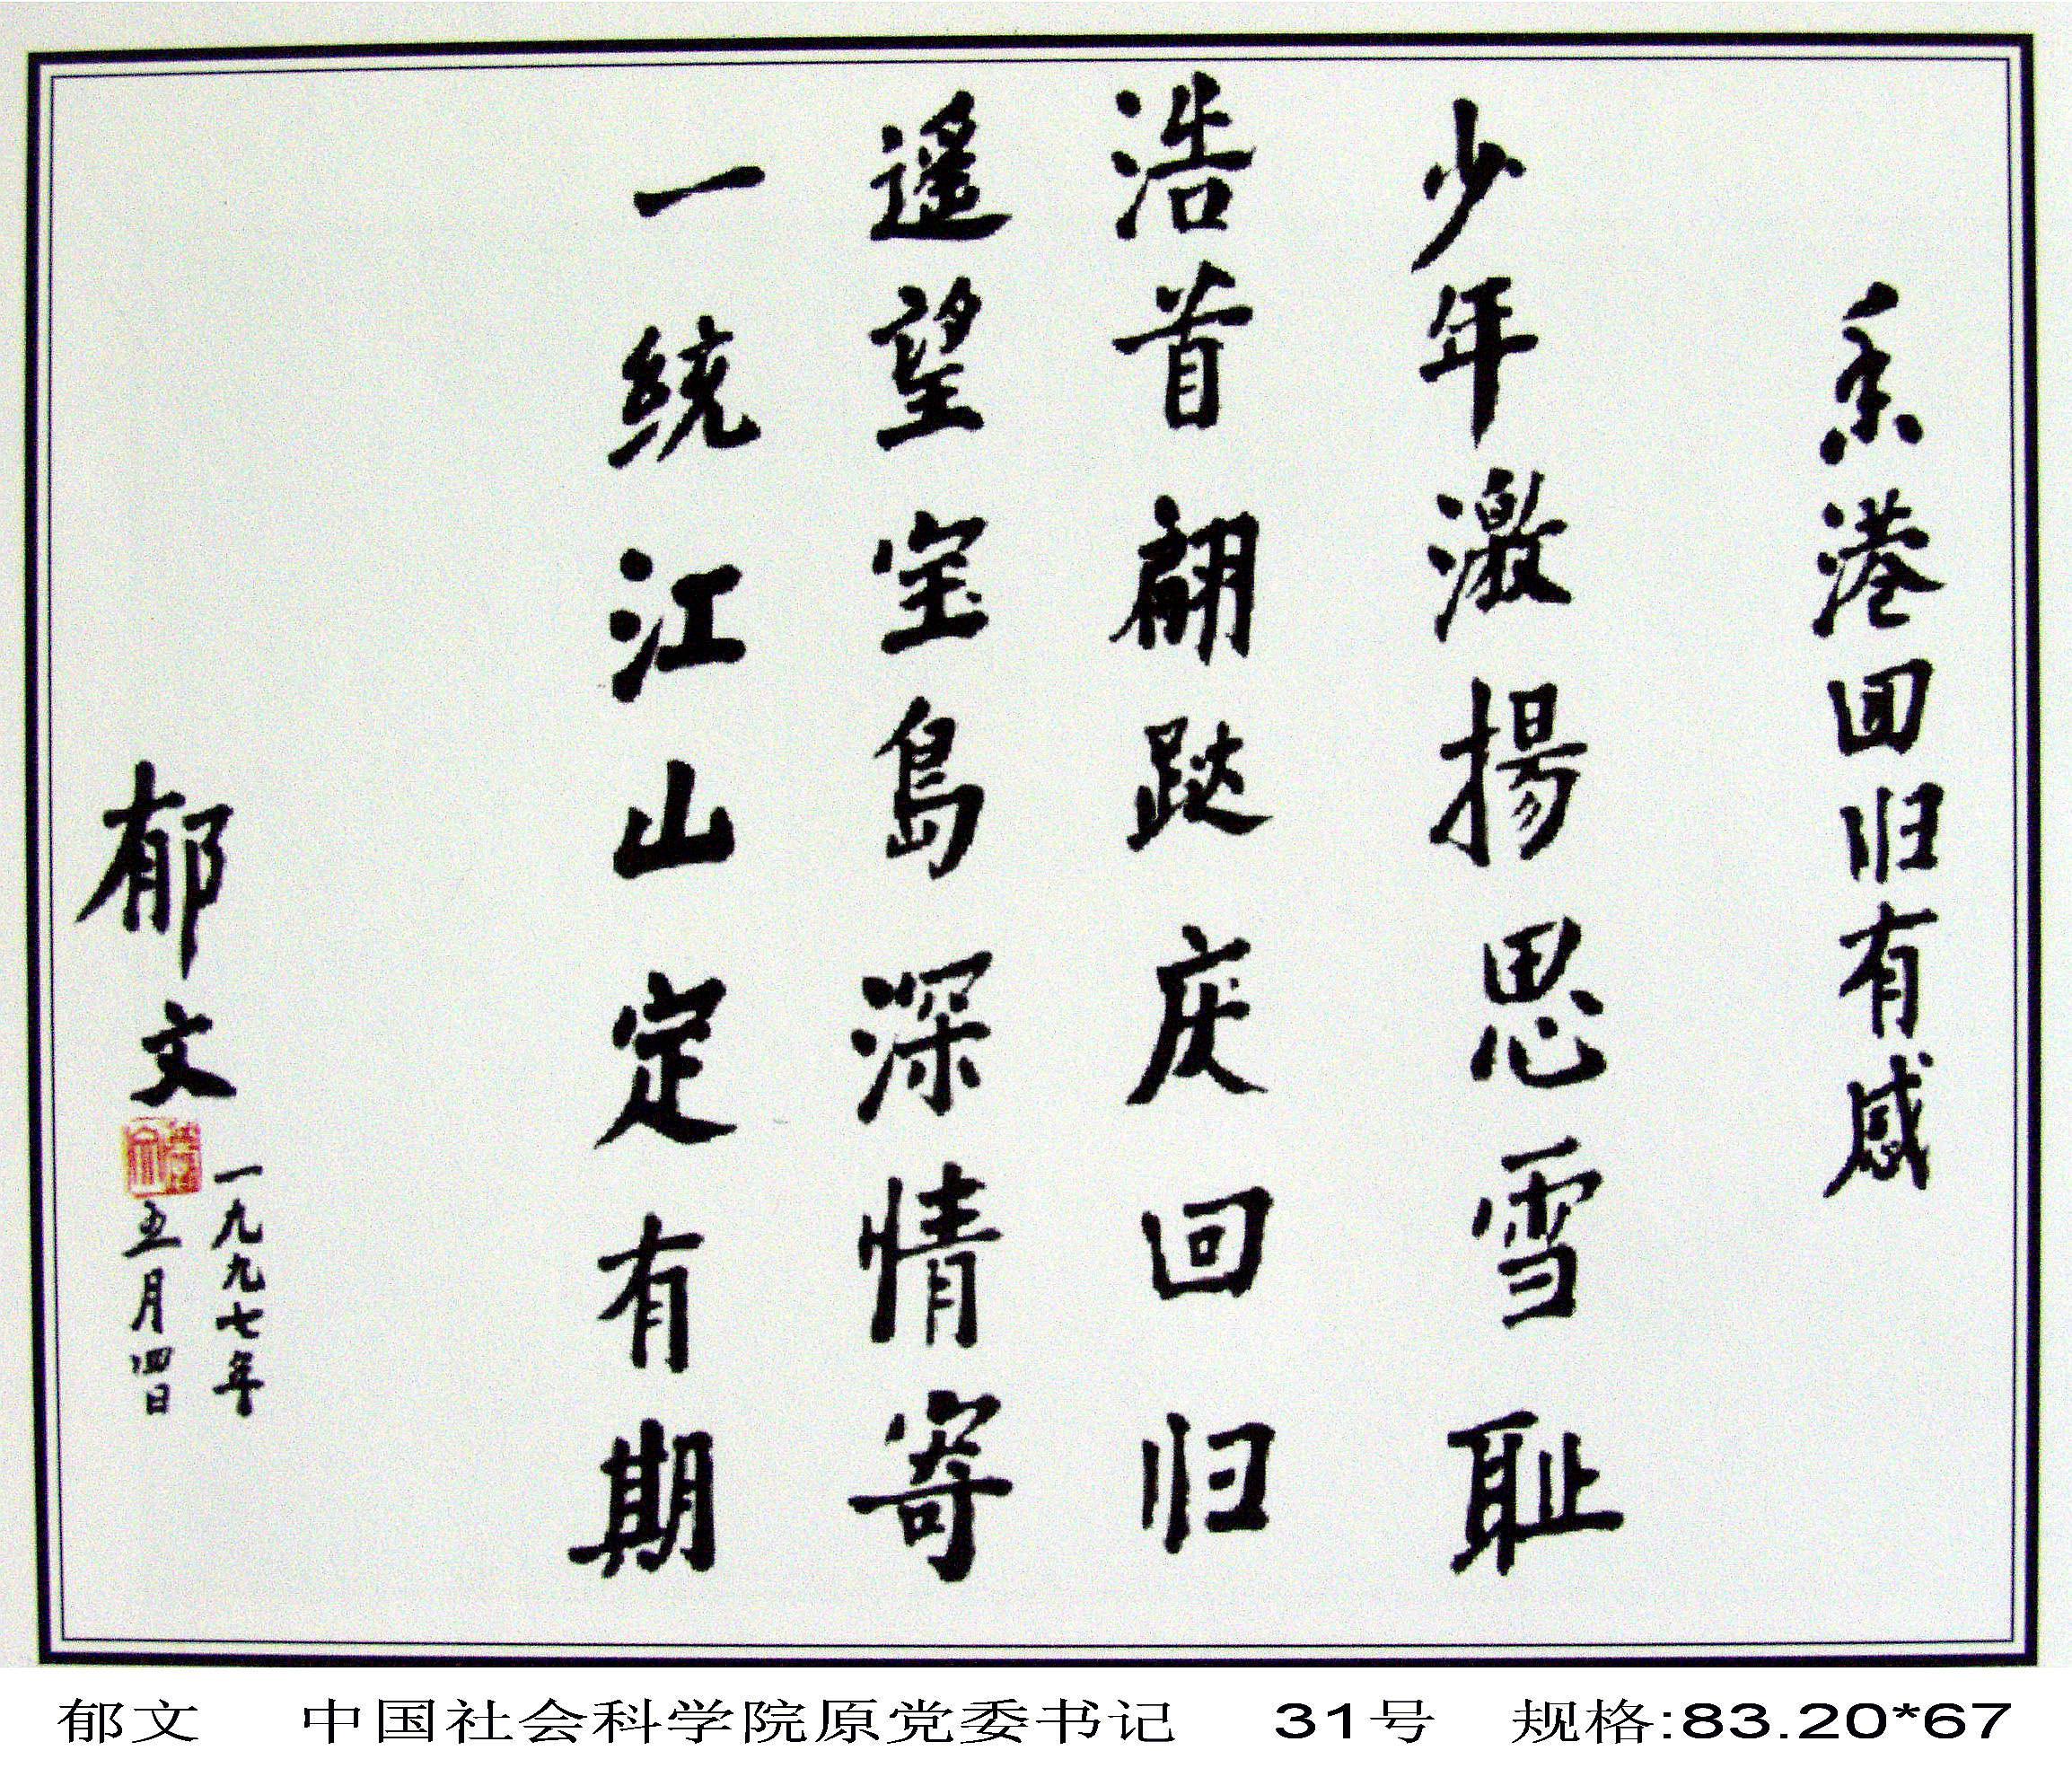 香港回归有感
少年激揚思雪耻
浩首翩跹庆回归
遥望宝島深情寄
一統江山定有期
郁文
一九九七年
五月四日
郁文 中国社会科学院原党委书记 31号 规格:83.20*67